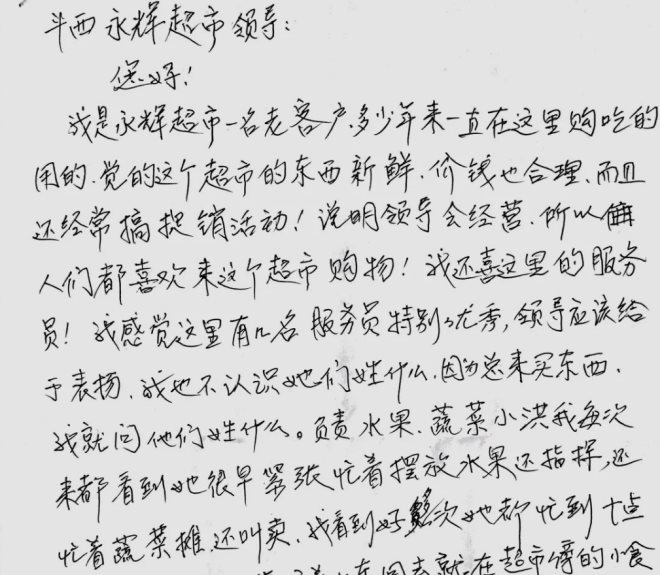 斗西永辉超市领导:
您好!
我是永辉超市一名老客户,多少年来一直在这里购吃的
用的.觉的这个超市的东西新鲜.价钱也合理.而且
还经常搞捉销活动!说明领导会经营.所以
人们都喜欢来这个超市购物!我还喜这里的服务
员!我感觉这里有几名服务员特别优秀,领导应该给
于表扬.我也不认识她们姓什么.因为总来买东西.
我就问他们姓什么。负责水果.蔬菜小洪我每次
来都看到她很早紧张忙着摆放水果还指挥,还
忙着蔬菜摊.还叫卖.我看到好多次她都忙到十点
就在超市